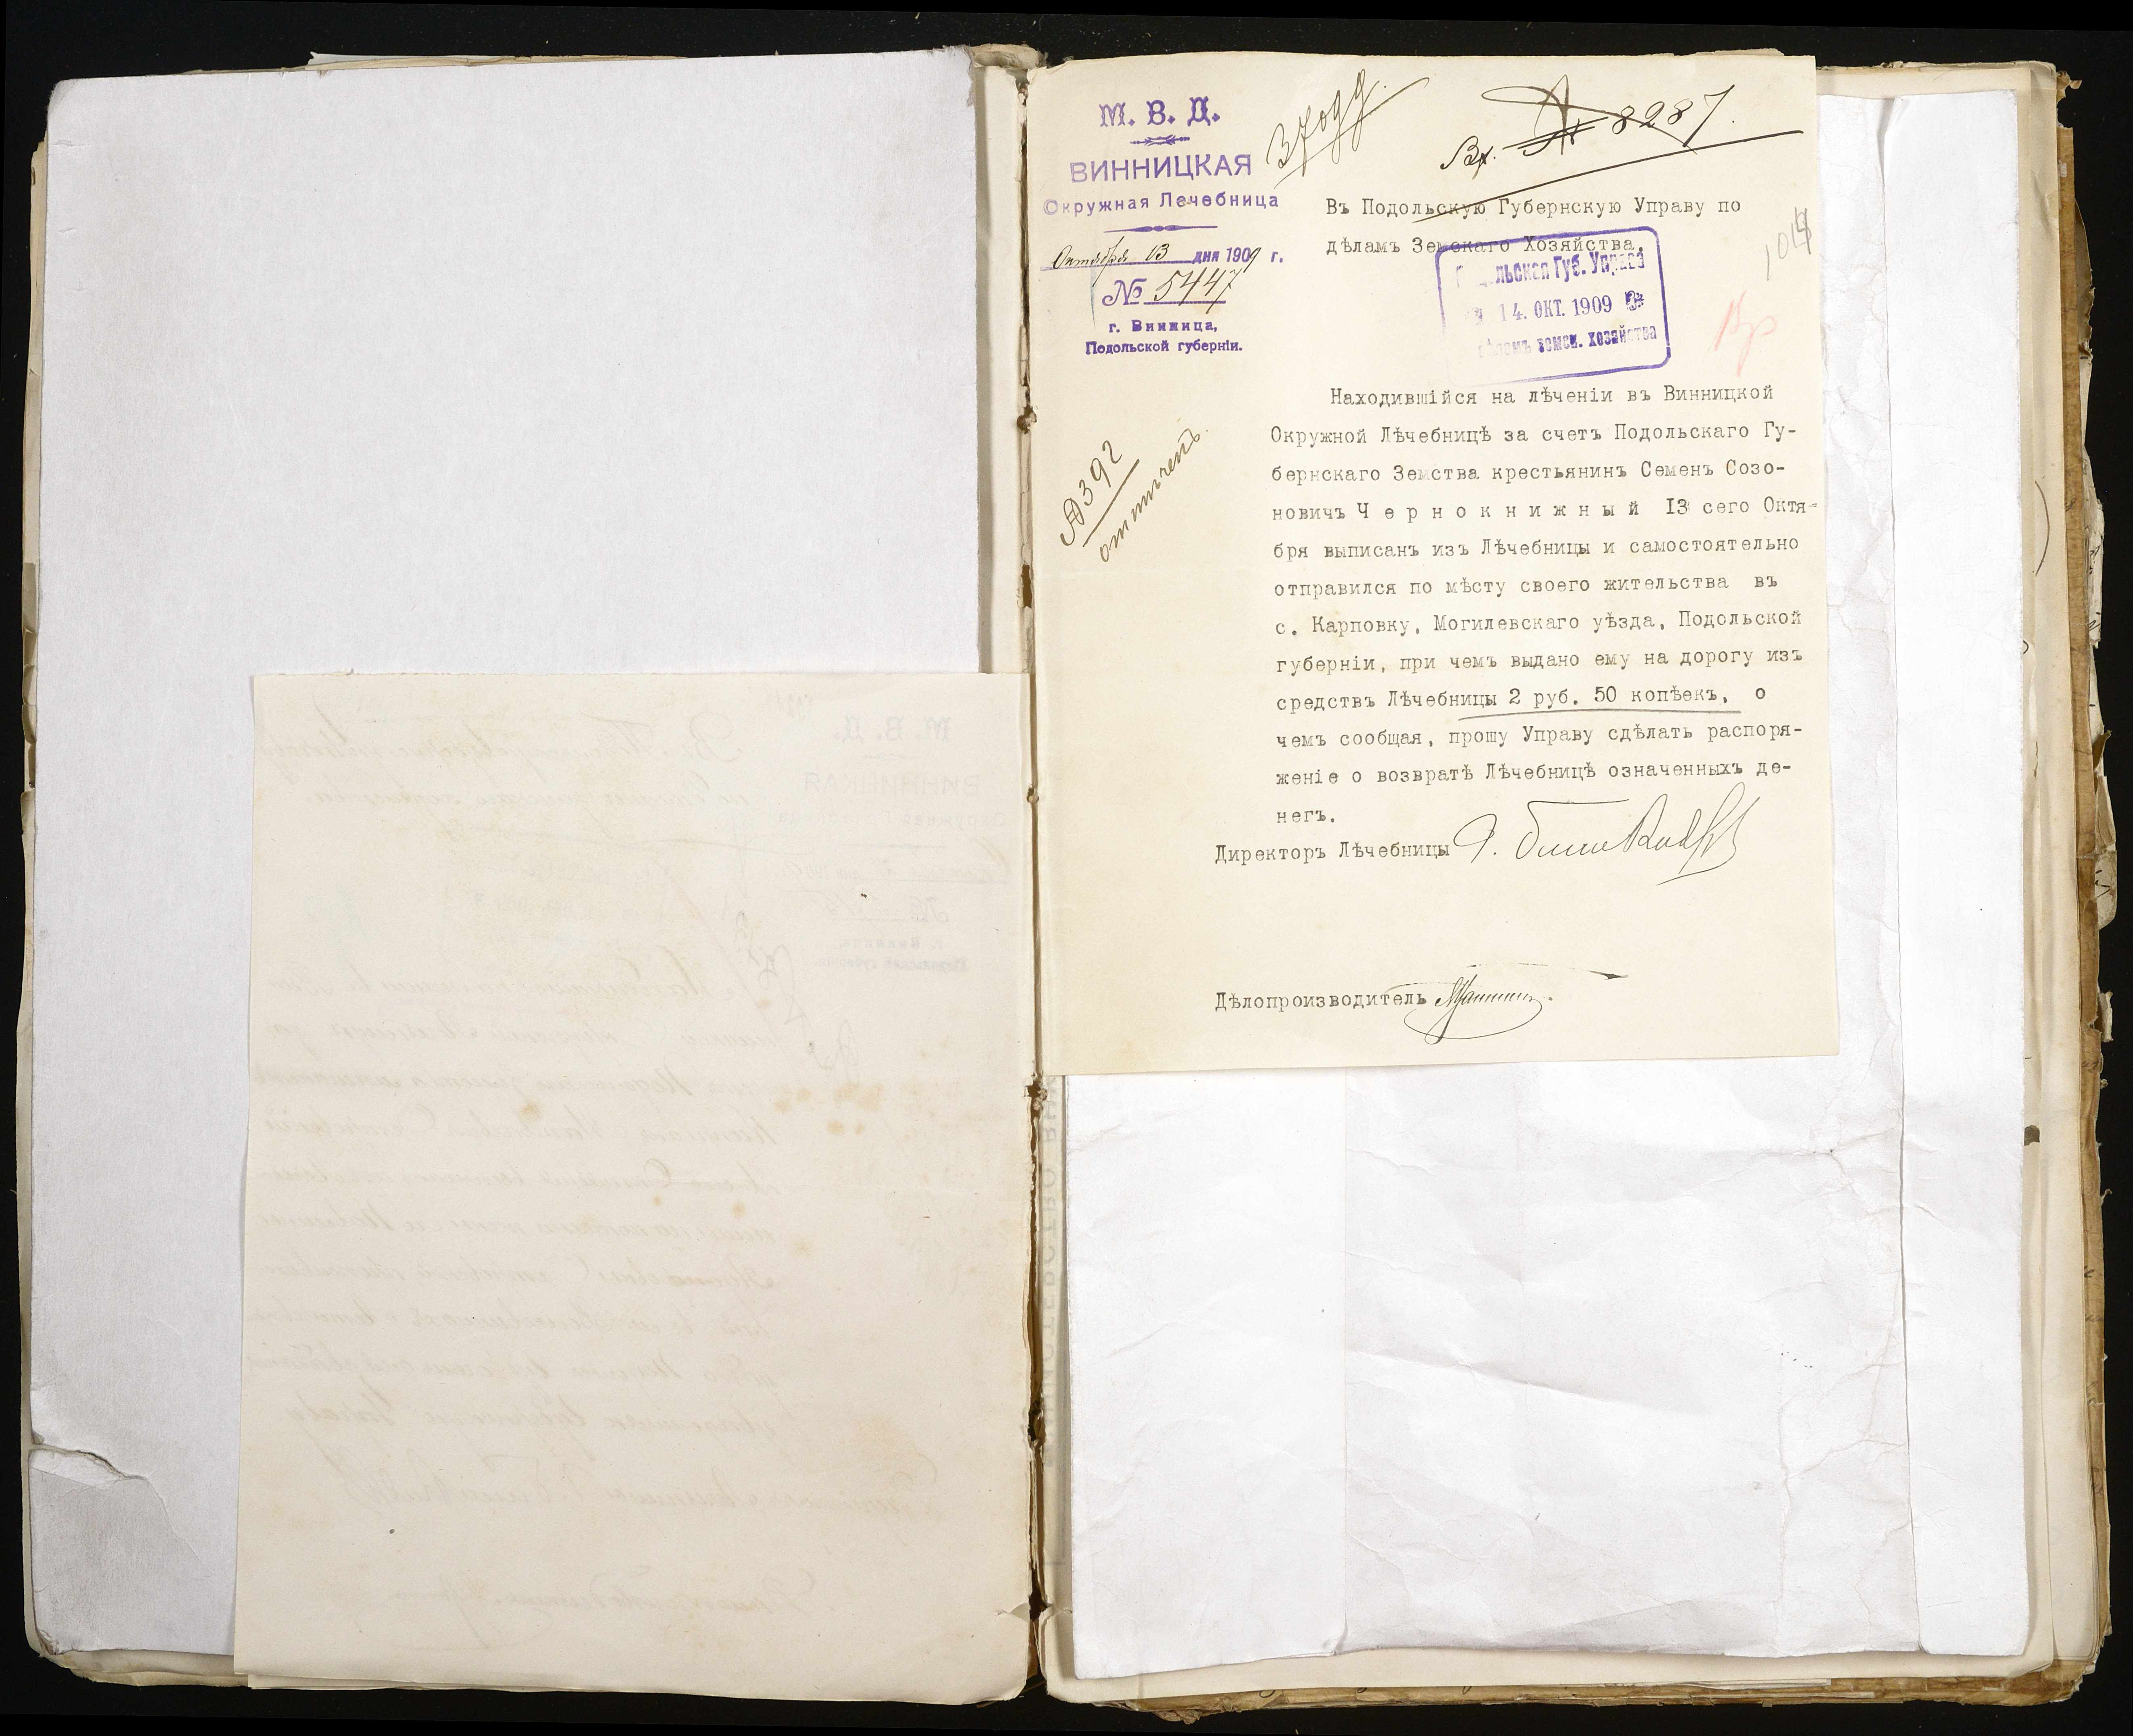 М. В. Д.
ВИННИЦКАЯ
Окружная Лечебница
Октября 13 дня 1909 г.
№ 5447
г. Винница,
Подольской губерніи.
Вх. № 8287.
Въ Подольскую Губернскую Управу по
дѣламъ Земскаго Хозяйства.
льская Губ. Управа
14. ОКТ. 1909
земск. хозяйства
№ 392
отмѣченъ.
Находившійся на лѣченіи въ Винницкой
Окружной Лѣчебницѣ за счетъ Подольскаго Гу-
бернскаго Земства крестьянинъ Семенъ Созо-
новичъ Ч е р н о к н и ж н ы й 13 сего Октя-
бря выписанъ изъ Лѣчебницы и самостоятельно
отправился по мѣсту своего жительства въ
с. Карповку, Могилевскаго уѣзда, Подольской
губерніи, при чемъ выдано ему на дорогу изъ
средствъ Лѣчебницы 2 руб. 50 копѣекъ, о
чемъ сообщая, прошу Управу сдѣлать распоря-
женіе о возвратѣ Лѣчебницѣ означенныхъ де-
негъ.
Директоръ Лѣчебницы
Дѣлопроизводитель